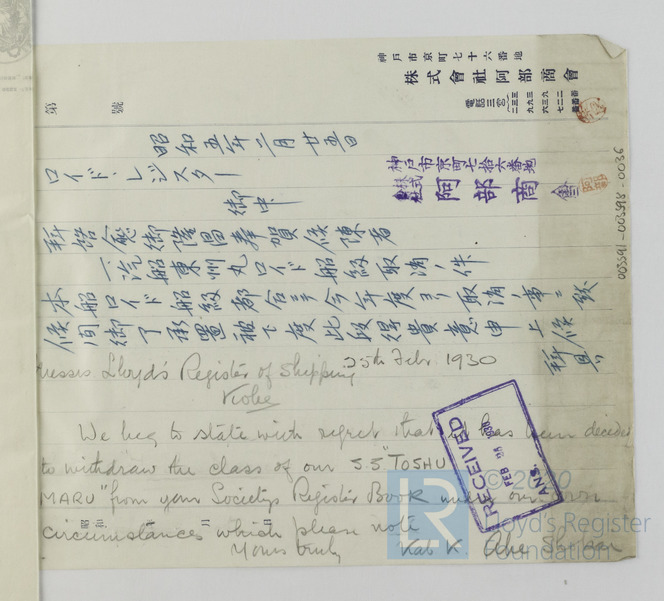 神戸市京町七十六番地
株式會社阿部商會
電話三宮
第　　號
昭和五年二月廿五日
神戸市京町七拾六番地
株式會社 阿部商會
ロイド、レジスター
御中
拝啓愈御隆昌奉賀候陳者
一、汽船東州丸ロイド船級取消ノ件
本船ロイド船級都合ニヨリ今年度ヨリ取消ノ事ニ致
候間御了承置被下度此段得貴意申上候
拝具
003591-003598-0036
25th Febr 1930
Messrs Lloyd's Register of Shipping
Kobe
We beg to state with regret that it has been decided
to withdraw the class of our S.S "TOSHU
MARU" from your Society's Register Book under our own
circumstances which please note
Yours truly
Kab K. Abe Shokai
昭和　年　月　日
RECEIVED
FEB
ANS.
LR
Lloyd's Register
Foundation